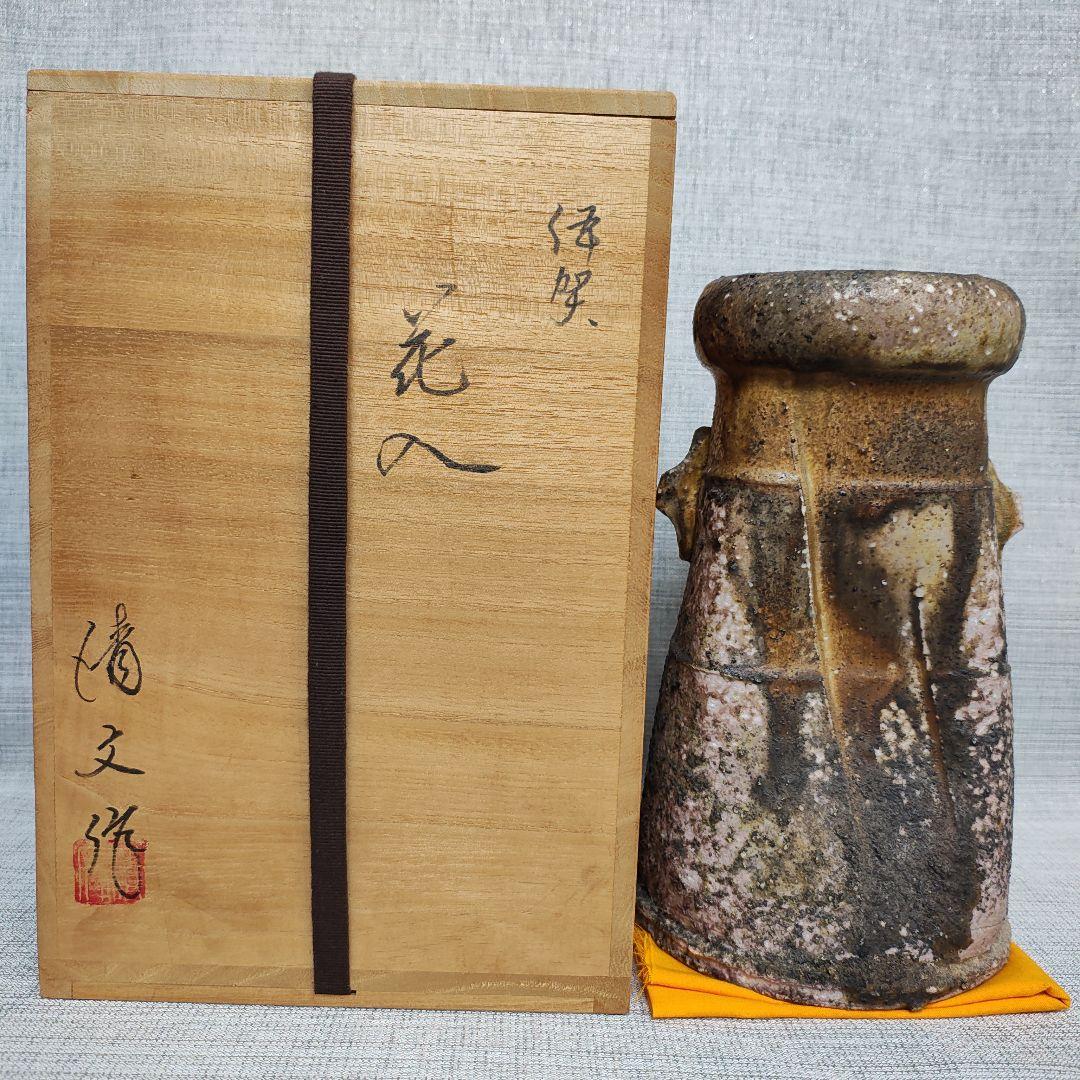 伊賀
花入
清文作